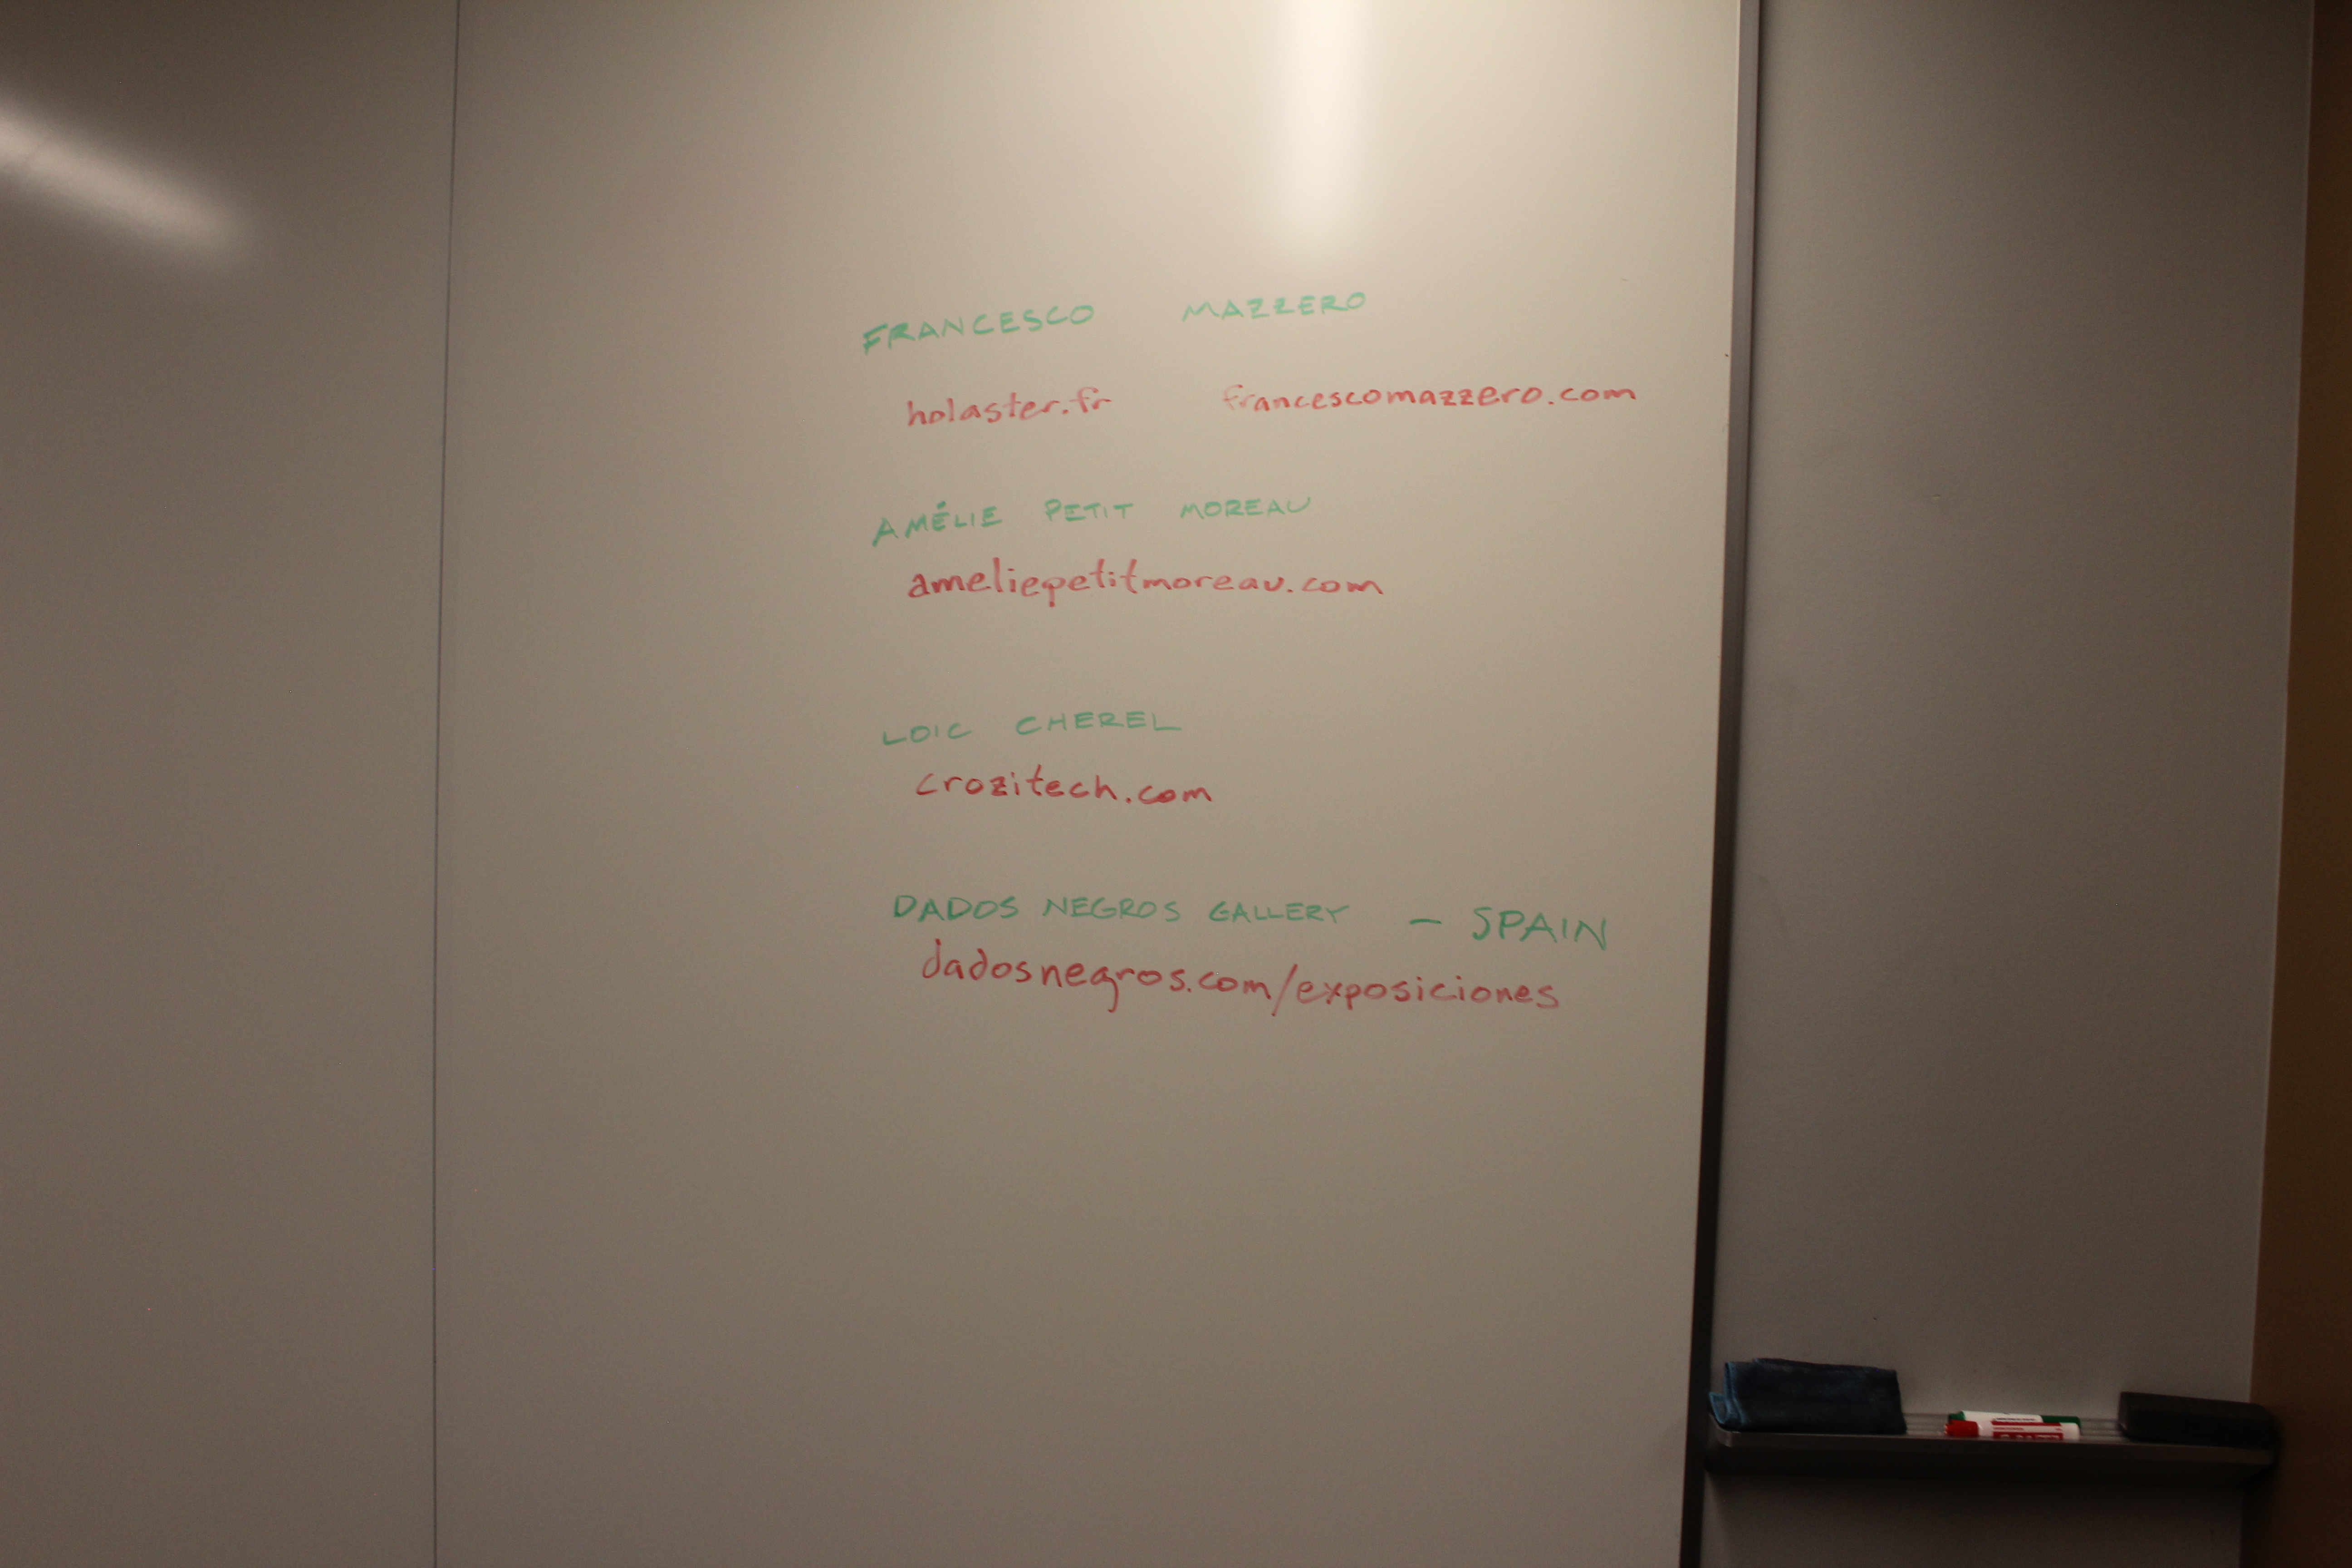 FRANCESCO MAZZERO
holaster.fr francescomazzero.com
AMÉLIE PETIT MOREAU
ameliepetitmoreau.com
LOIC CHEREL
crozitech.com
DADOS NEGROS GALLERY - SPAIN
dadosnegros.com/exposiciones